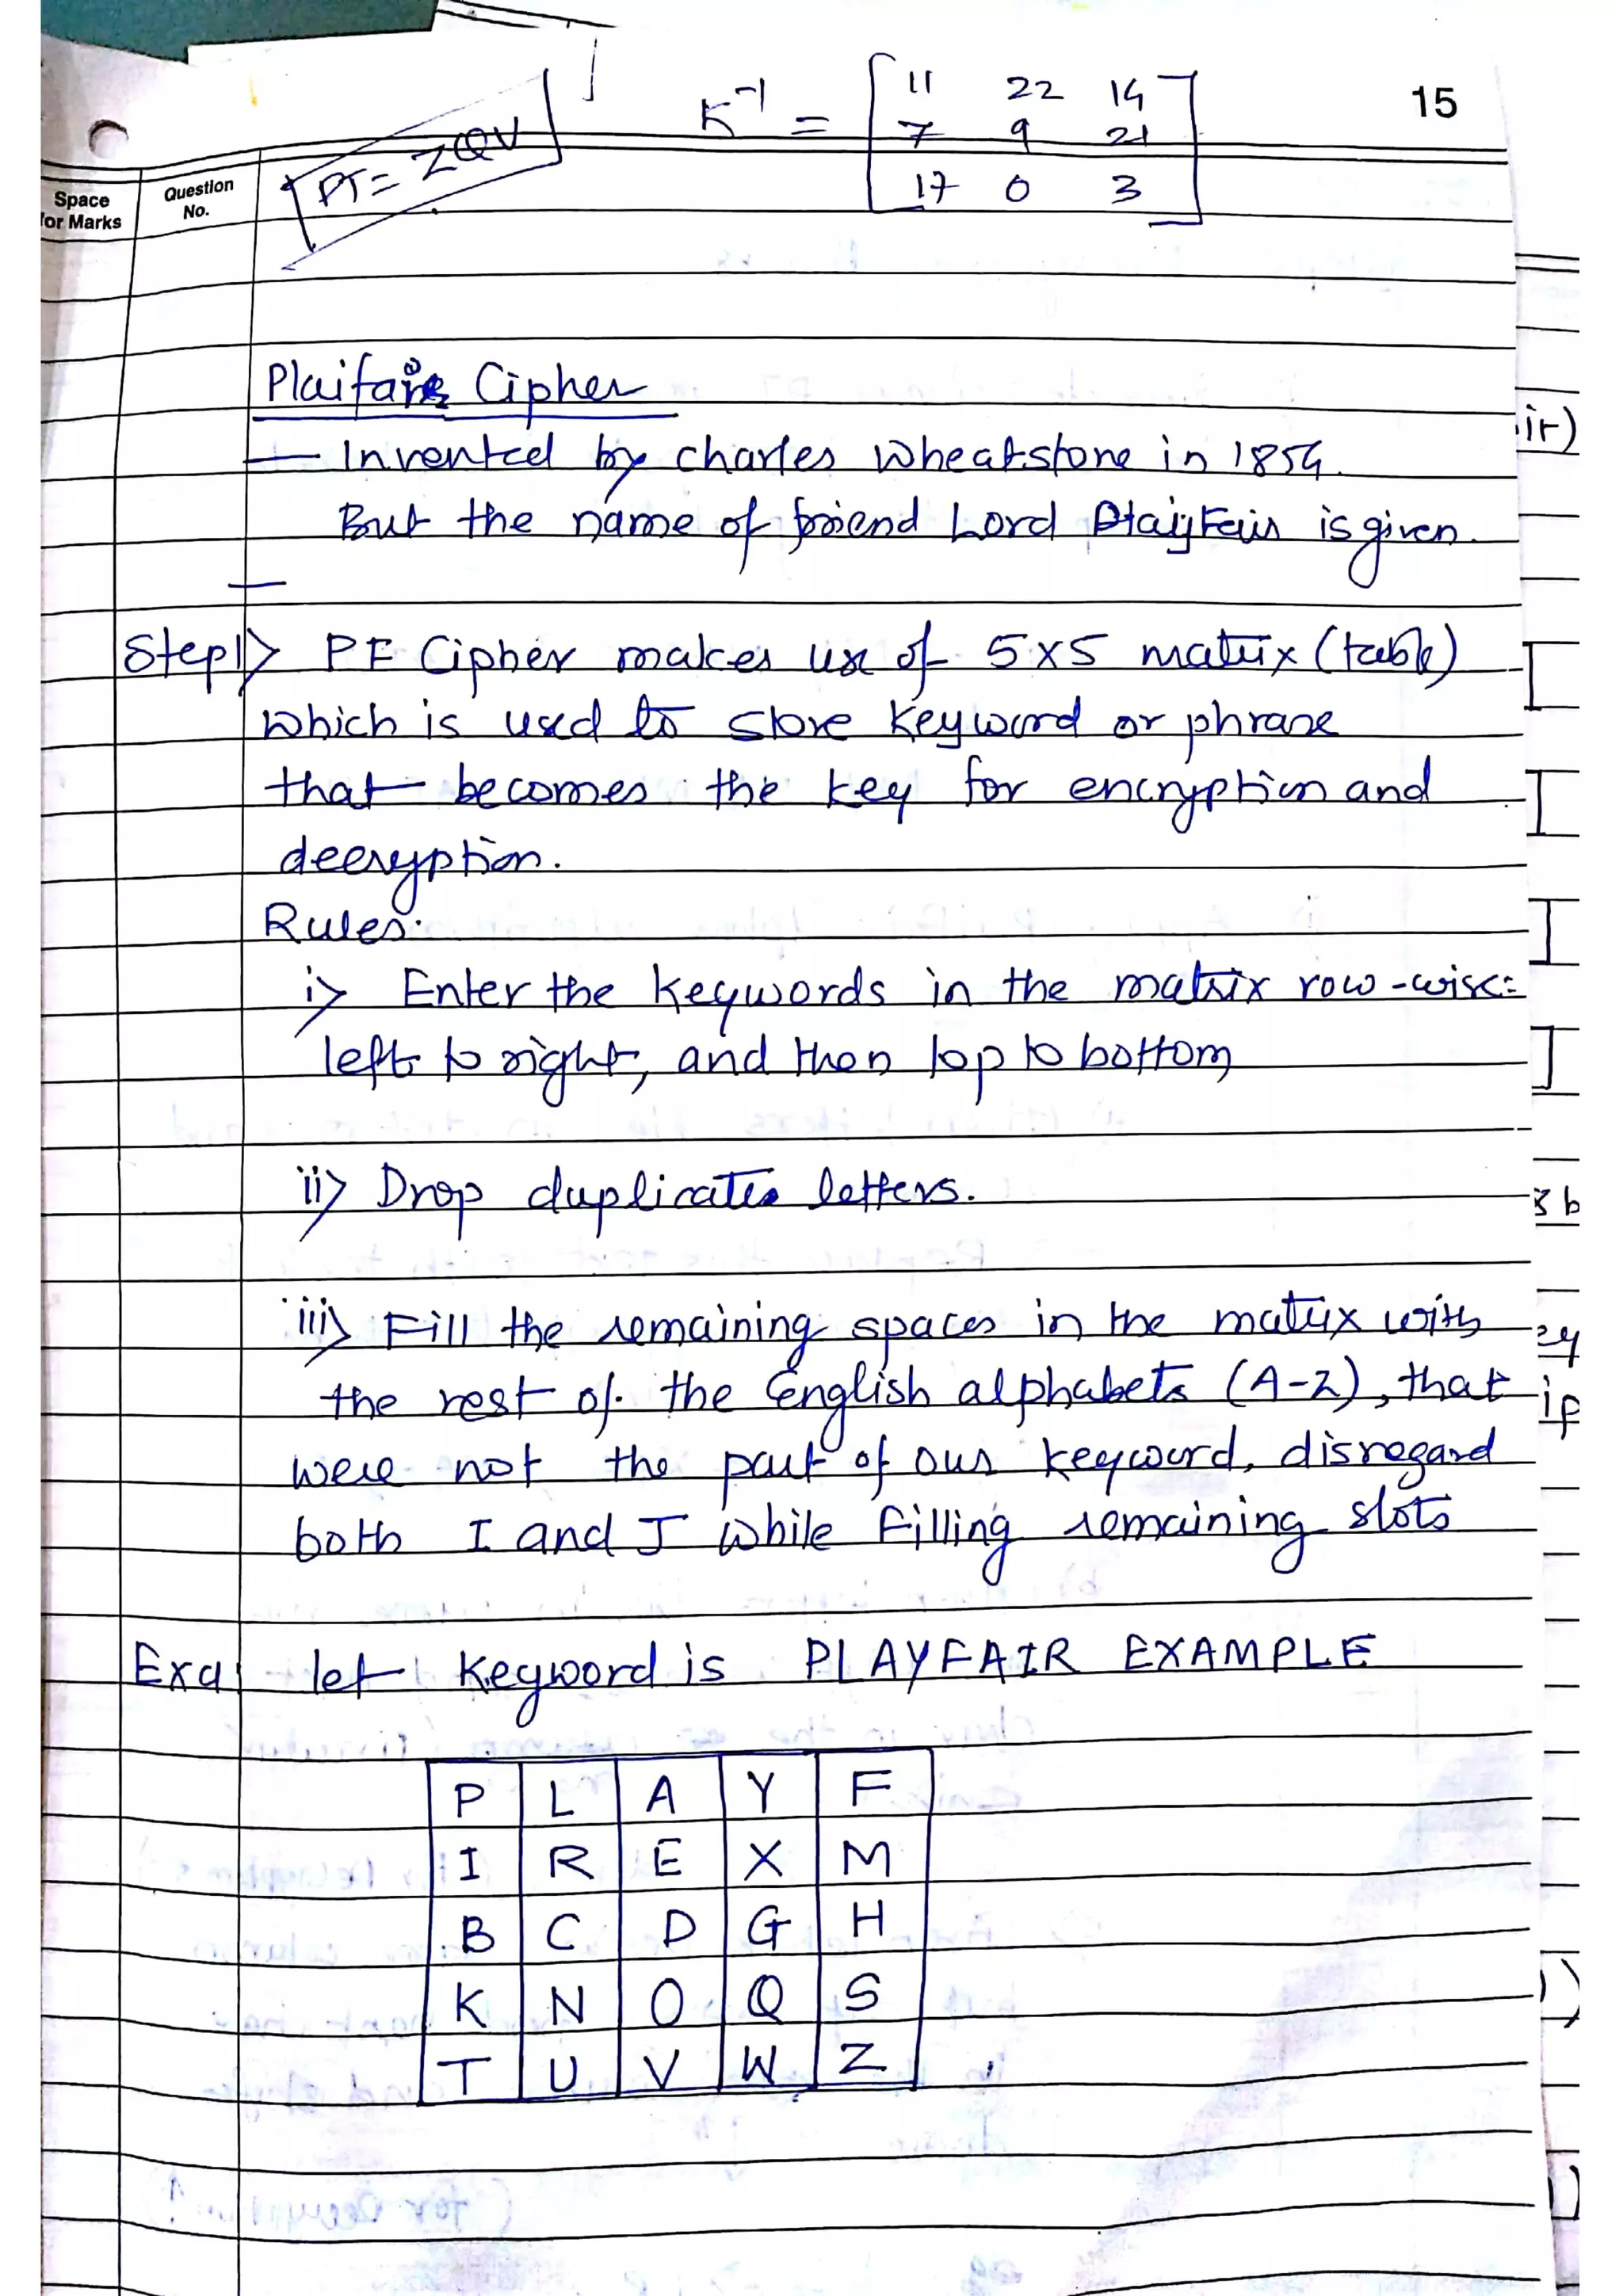 K⁻¹ = [ 11 22 14
7 9 21
17 0 3 ]
15
PT = ZQV
Space
for Marks
Question
No.
Plaifair Cipher
— Invented by charles Wheatstone in 1854.
But the name of friend Lord Playfair is given.
—
Step1> PF Cipher makes use of 5x5 matrix (table)
which is used to store keyword or phrase
that becomes the key for encryption and
decryption.
Rules:
i> Enter the keywords in the matrix row-wise:
left to right, and then top to bottom
ii> Drop duplicates letters.
iii> Fill the remaining spaces in the matrix with
the rest of the English alphabets (A-Z), that
were not the part of our keyword, disregard
both I and J while filling remaining slots
Exa: let keyword is PLAYFAIR EXAMPLE
P L A Y F
I R E X M
B C D G H
K N O Q S
T U V W Z